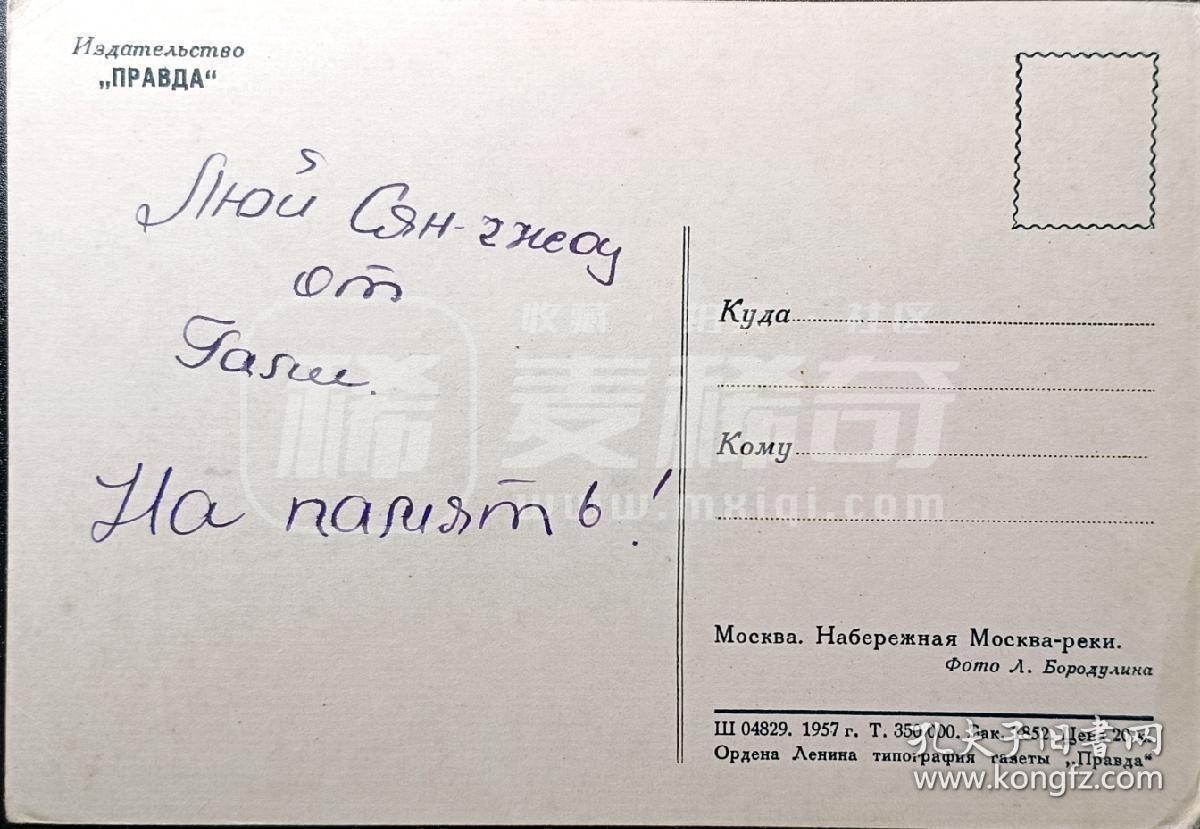 Издательство
„ПРАВДА“
Люй Сян-чжоу
от
Гали.
На память!
Куда
Кому
Москва. Набережная Москва-реки.
Фото Л. Бородулина
Ш 04829. 1957 г. Т. 350 000. Зак. 1852. Цена 20 к.
Ордена Ленина типография газеты „Правда“
收藏 社区
稀 麦稀奇
www.mxiqi.com
孔夫子旧书网
www.kongfz.com